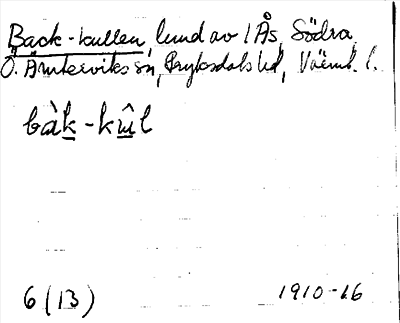 Back-kullen, lund av 1 Ås, Södra,
Ö. Ämterviks sn, Fryksdals hd, Värml. l.
bàk-kɯ̂l
6 (13) 1910-16